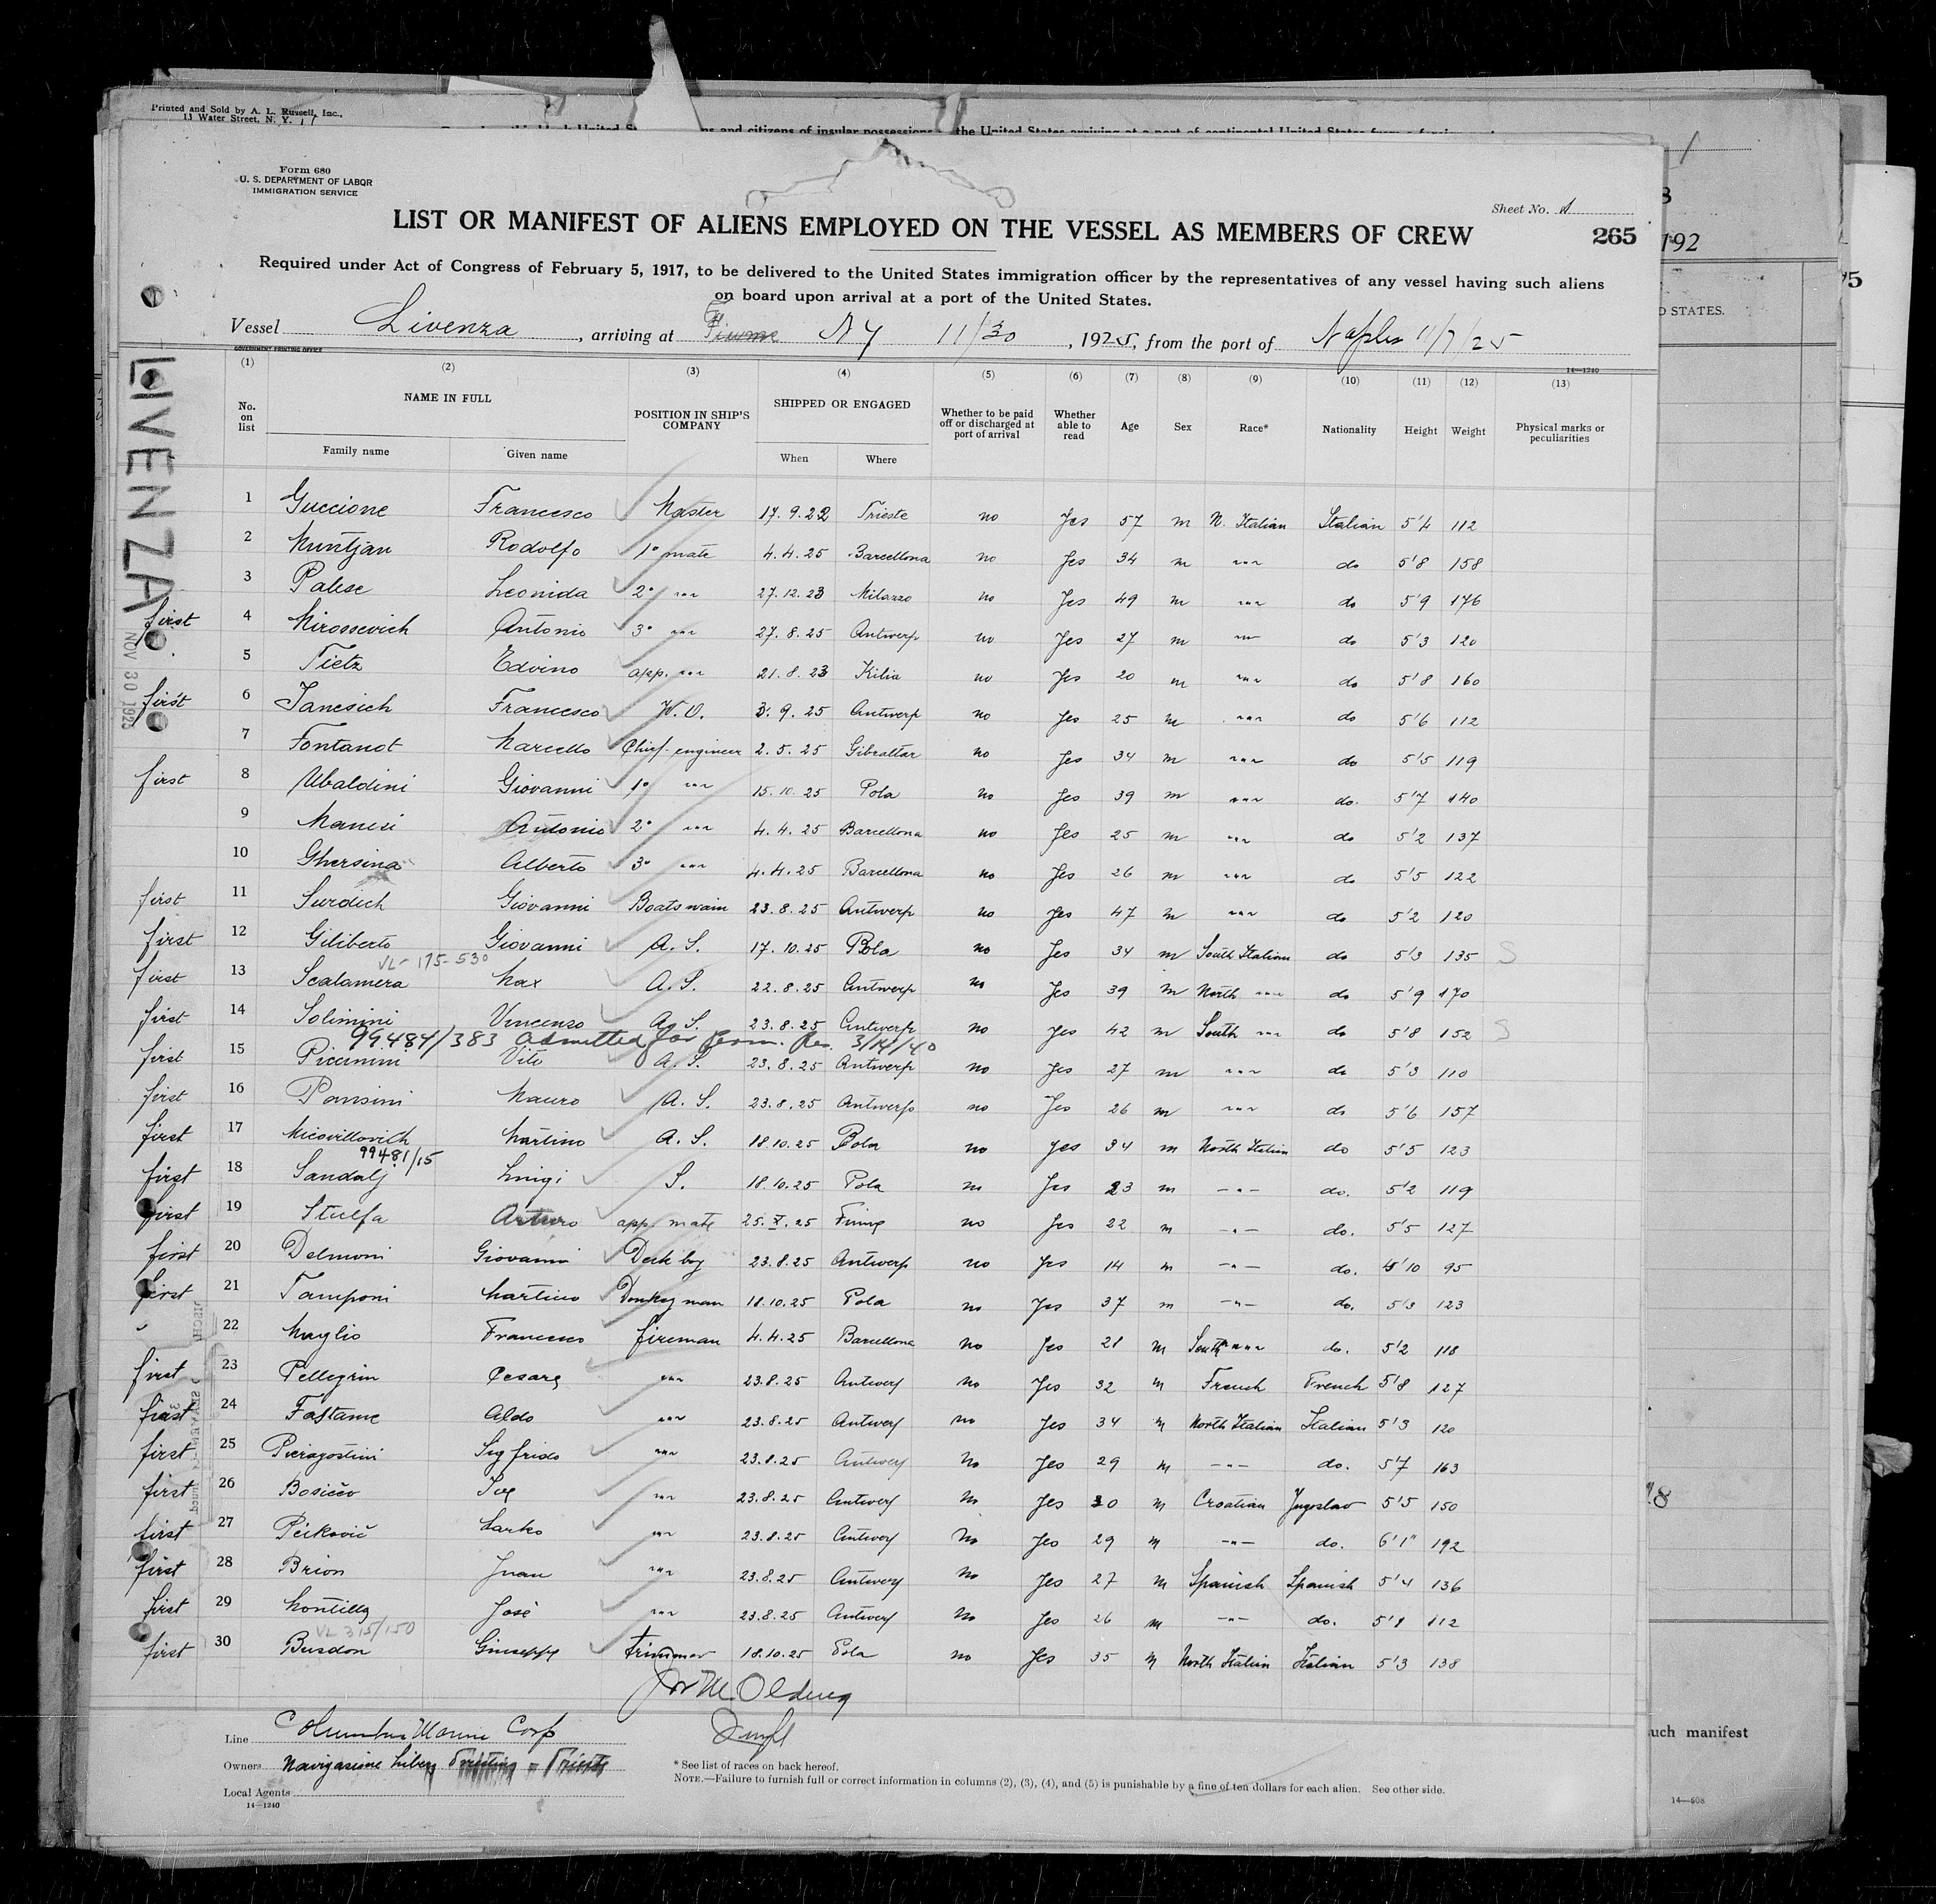 Printed and Sold by A. L. Russell, Inc.,
13 Water Street, N. Y.
Form 680
U. S. DEPARTMENT OF LABOR
IMMIGRATION SERVICE
Sheet No. 1
LIST OR MANIFEST OF ALIENS EMPLOYED ON THE VESSEL AS MEMBERS OF CREW
265
192
Required under Act of Congress of February 5, 1917, to be delivered to the United States immigration officer by the representatives of any vessel having such aliens
on board upon arrival at a port of the United States.
D STATES.
Vessel Livenza, arriving at Fiume NY 11/30, 1925, from the port of Naples 11/7/25
GOVERNMENT PRINTING OFFICE
14—1240
LIVENZA
NOV 30 1925
(1) (2) (3) (4) (5) (6) (7) (8) (9) (10) (11) (12) (13)
No. on list NAME IN FULL POSITION IN SHIP'S COMPANY SHIPPED OR ENGAGED Whether to be paid off or discharged at port of arrival Whether able to read Age Sex Race* Nationality Height Weight Physical marks or peculiarities
Family name Given name When Where
1 Guccione Francesco Master 17.9.22 Trieste no Yes 57 m N. Italian Italian 5'4 112
2 Muntjan Rodolfo 1° mate 4.4.25 Barcellona no Yes 34 m " do 5'8 158
3 Palese Leonida 2° " 27.12.23 Milazzo no Yes 49 m " do 5'9 176
first 4 Mirossevich Antonio 3° " 27.8.25 Antwerp no Yes 27 m " do 5'3 120
5 Tietz Edvino app. " 21.8.23 Kilia no Yes 20 m " do 5'8 160
first 6 Janesich Francesco W.O. 3.9.25 Antwerp no Yes 25 m " do 5'6 112
7 Fontanot Marcello Chief engineer 2.5.25 Gibraltar no Yes 34 m " do 5'5 119
first 8 Ubaldini Giovanni 1° " 15.10.25 Pola no Yes 39 m " do. 5'7 140
9 Maneri Antonio 2° " 4.4.25 Barcellona no Yes 25 m " do 5'2 137
10 Ghersina Alberto 3° " 4.4.25 Barcellona no Yes 26 m " do 5'5 122
first 11 Surdich Giovanni Boatswain 23.8.25 Antwerp no Yes 47 m " do 5'2 120
first 12 Giliberto Giovanni A. S. 17.10.25 Pola no Yes 34 m South Italian do 5'3 135 S
VL-175-530
first 13 Scalamera Max A. S. 22.8.25 Antwerp no Yes 39 m North " do 5'9 170
first 14 Solimini Vincenzo A. S. 23.8.25 Antwerp no Yes 42 m South " do 5'8 152 S
99484/383 Admitted for Perm. Res. 3/14/40
first 15 Piccinini Vito A. S. 23.8.25 Antwerp no Yes 27 m " do 5'3 110
first 16 Pansini Mauro A. S. 23.8.25 Antwerp no Yes 26 m " do 5'6 157
first 17 Micovillovich Martino A. S. 18.10.25 Pola no yes 34 m North Italian do 5'5 123
99481/15
first 18 Sandalj Luigi S. 18.10.25 Pola no Yes 23 m " do. 5'2 119
first 19 Stulfa Arturo app. mate 25.X.25 Fiume no Yes 22 m " do. 5'5 127
first 20 Delmoni Giovanni Deck boy 23.8.25 Antwerp no Yes 14 m " do. 4'10 95
first 21 Tamponi Martino Donkeyman 18.10.25 Pola no Yes 37 m " do. 5'3 123
22 Muglio Francesco fireman 4.4.25 Barcellona no Yes 21 m South " do. 5'2 118
first 23 Pellegrin Cesare " 23.8.25 Antwerp no Yes 32 m French French 5'8 127
first 24 Fastame Aldo " 23.8.25 Antwerp no Yes 34 m North Italian Italian 5'3 120
first 25 Pieragostini Sigfrido " 23.8.25 Antwerp No Yes 29 m " do. 5'7 163
first 26 Bosicco Ive " 23.8.25 Antwerp No Yes 30 m Croatian Jugoslav 5'5 150
first 27 Perkovič Zarko " 23.8.25 Antwerp No Yes 29 m " do. 6'1" 192
first 28 Brion Juan " 23.8.25 Antwerp No Yes 27 m Spanish Spanish 5'4 136
first 29 Montilla José " 23.8.25 Antwerp No Yes 26 m " do. 5'1 112
VL 315/150
first 30 Busdon Giuseppe trimmer 18.10.25 Pola no Yes 35 m North Italian Italian 5'3 138
Line Columbus Marine Corp
Owners Navigazione Libera Triestina - Trieste
Local Agents
14—1240
* See list of races on back hereof.
NOTE.—Failure to furnish full or correct information in columns (2), (3), (4), and (5) is punishable by a fine of ten dollars for each alien. See other side.
such manifest
14—608